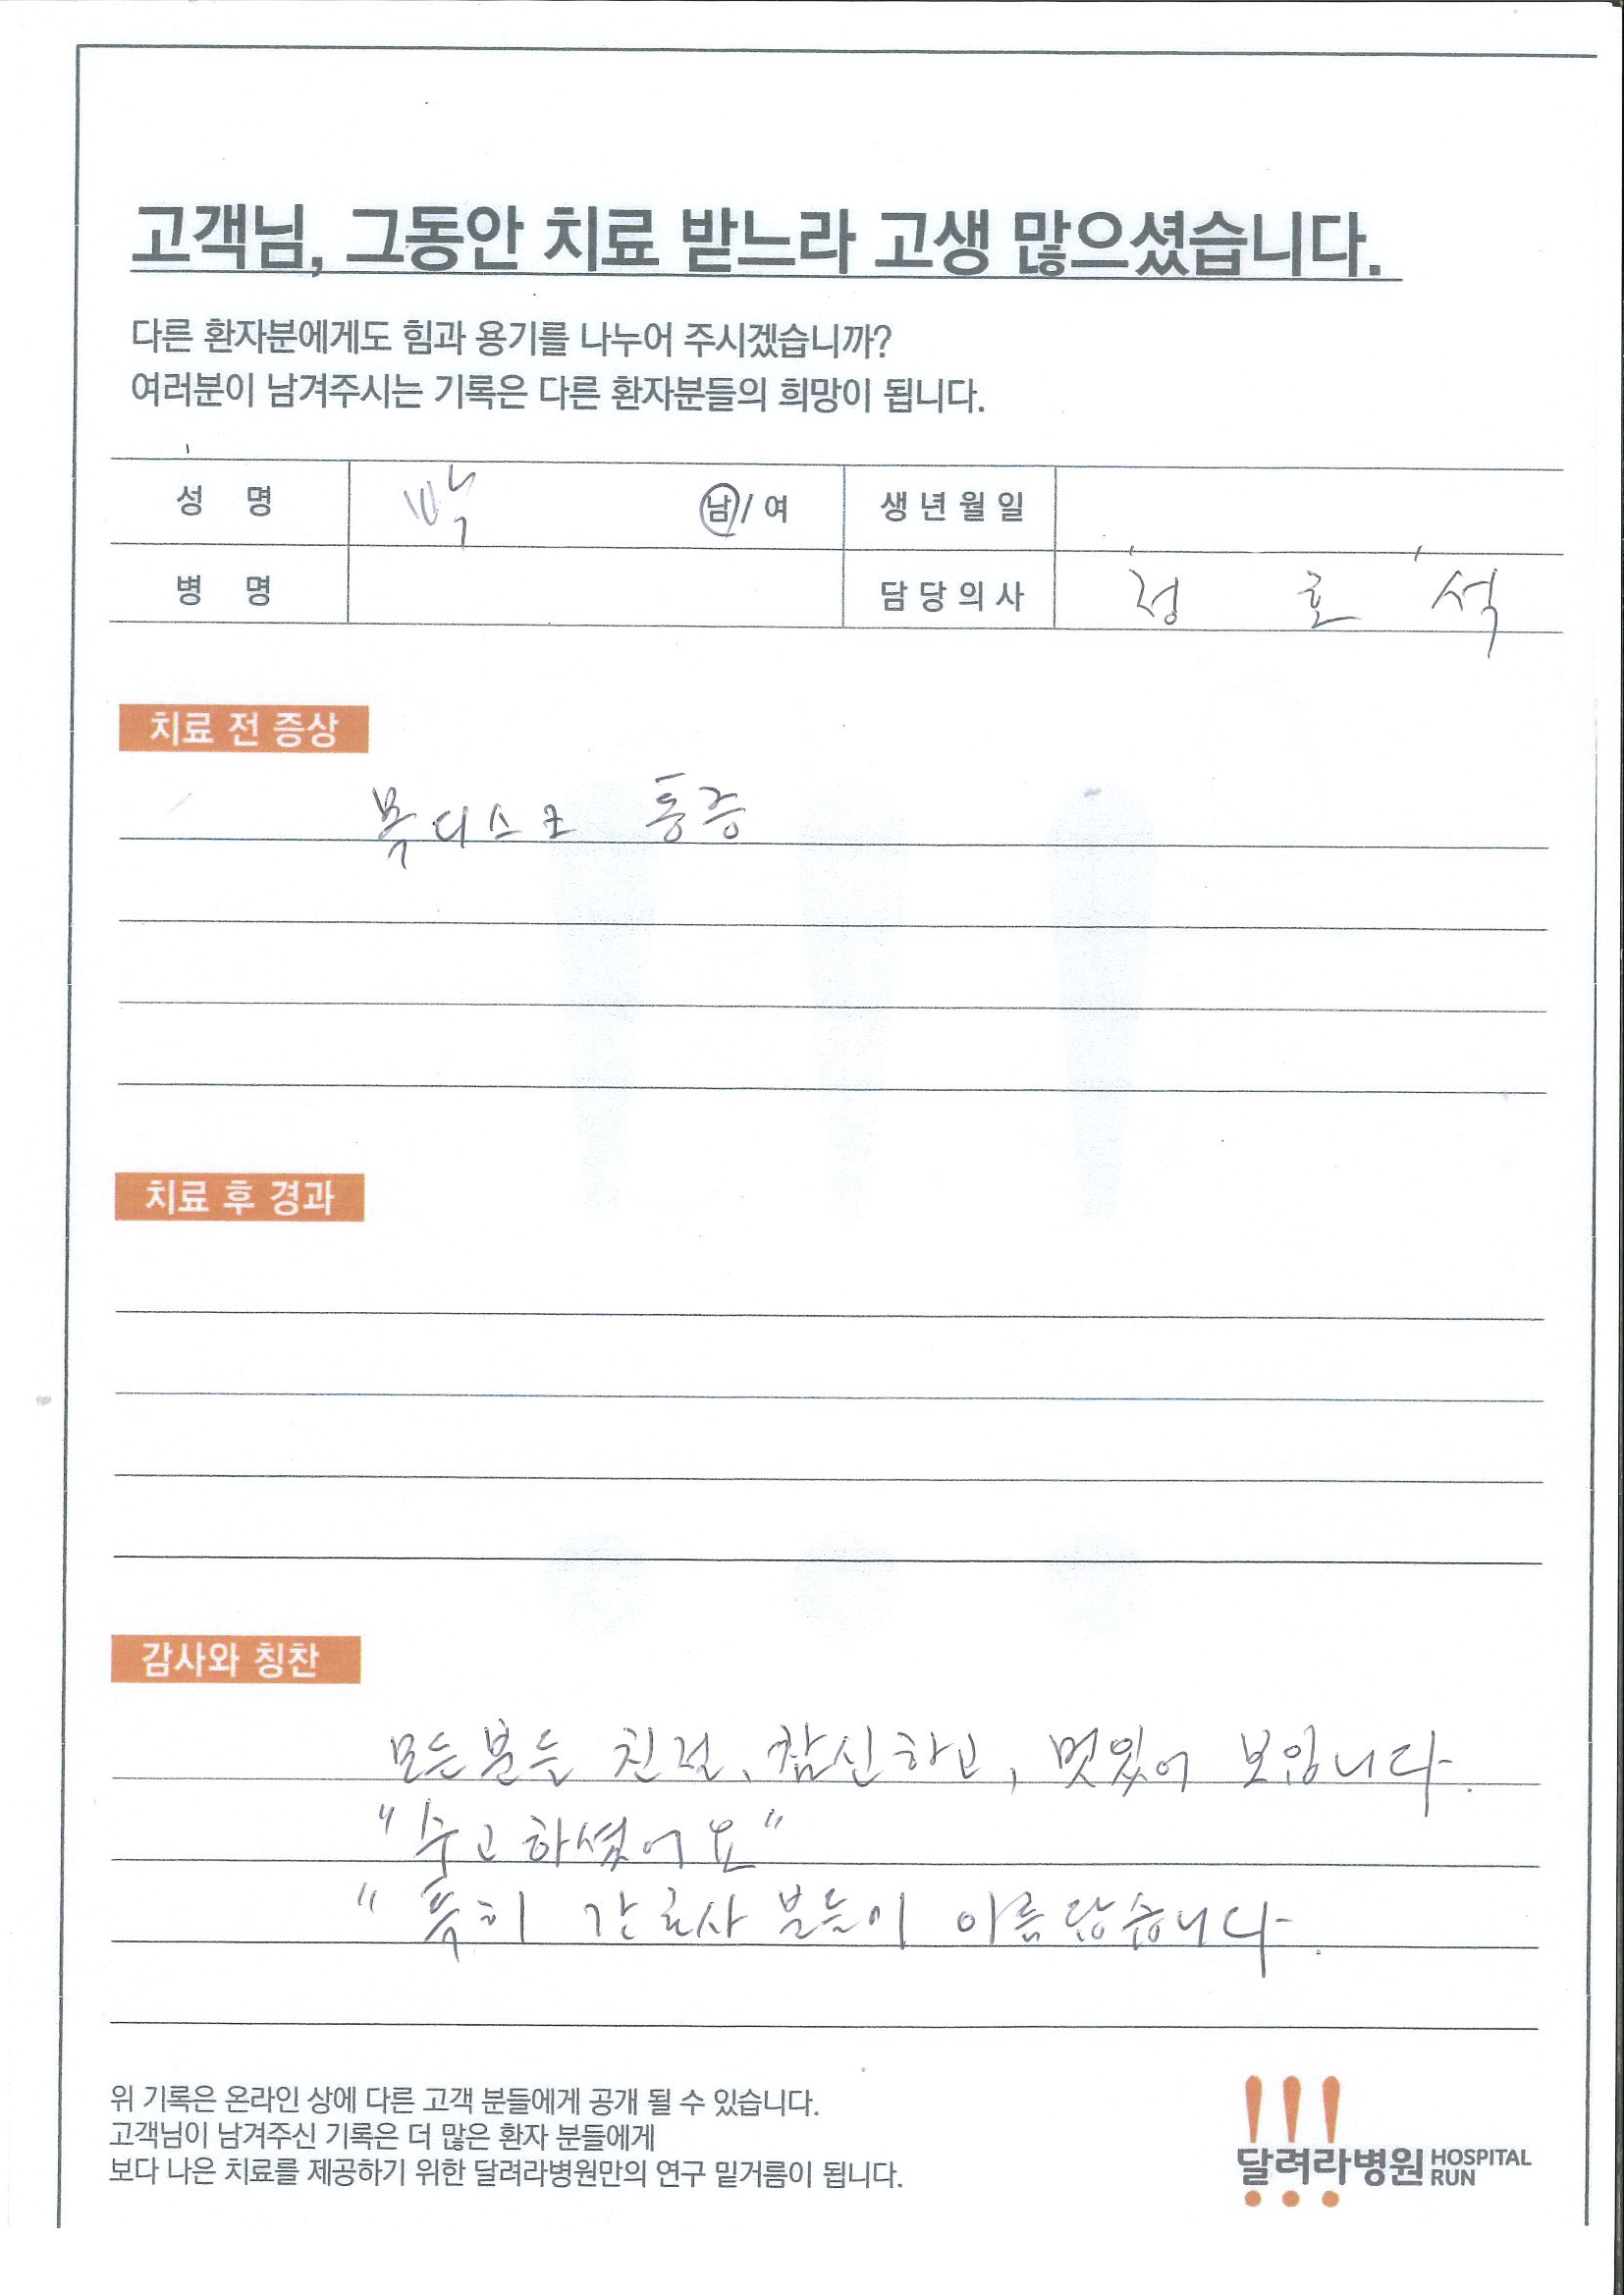 고객님, 그동안 치료 받느라 고생 많으셨습니다.
다른 환자분에게도 힘과 용기를 나누어 주시겠습니까?
여러분이 남겨주시는 기록은 다른 환자분들의 희망이 됩니다.
성 명 박 남/여 생년월일
병 명 담당의사 정 호 석
치료 전 증상
목디스크 통증
치료 후 경과
감사와 칭찬
모든분들 친절, 참신하고, 멋있어 보입니다.
"수고하셨어요"
"특히 간호사 분들이 아름답습니다.
위 기록은 온라인 상에 다른 고객 분들에게 공개 될 수 있습니다.
고객님이 남겨주신 기록은 더 많은 환자 분들에게
보다 나은 치료를 제공하기 위한 달려라병원만의 연구 밑거름이 됩니다.
달려라병원 HOSPITAL RUN